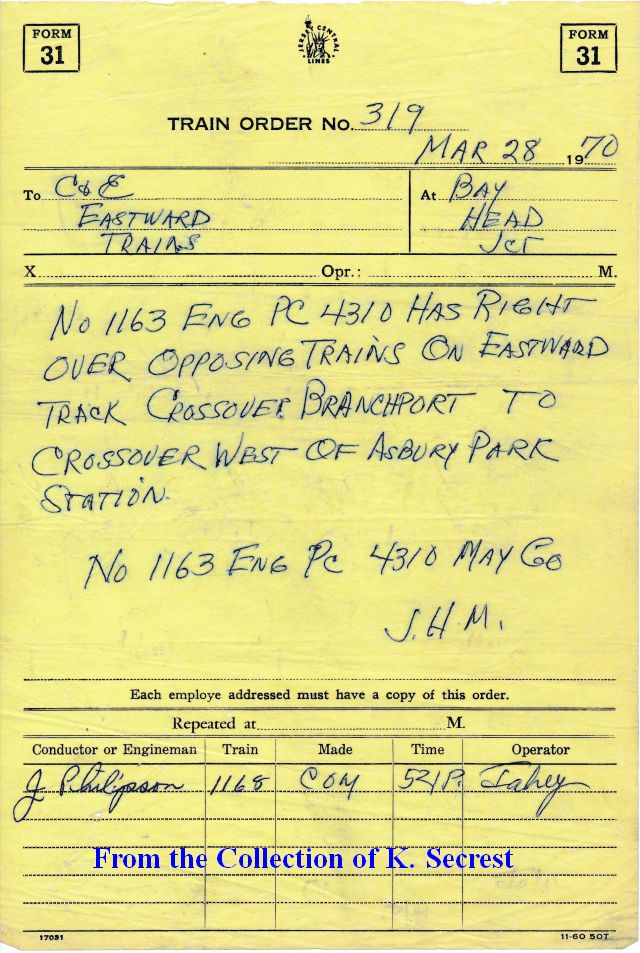 FORM 31
JERSEY CENTRAL LINES
FORM 31
TRAIN ORDER No. 319
MAR 28 1970
To C&E
EASTWARD
TRAINS
At BAY
HEAD
JCT
X Opr.: M.
No 1163 ENG PC 4310 HAS RIGHT
OVER OPPOSING TRAINS ON EASTWARD
TRACK CROSSOVER BRANCHPORT TO
CROSSOVER WEST OF ASBURY PARK
STATION.
No 1163 ENG PC 4310 MAY GO
J.H.M.
Each employe addressed must have a copy of this order.
Repeated at M.
Conductor or Engineman Train Made Time Operator
J Philipson 1168 COM 521P. Fahey
From the Collection of K. Secrest
17031 11-60 50T